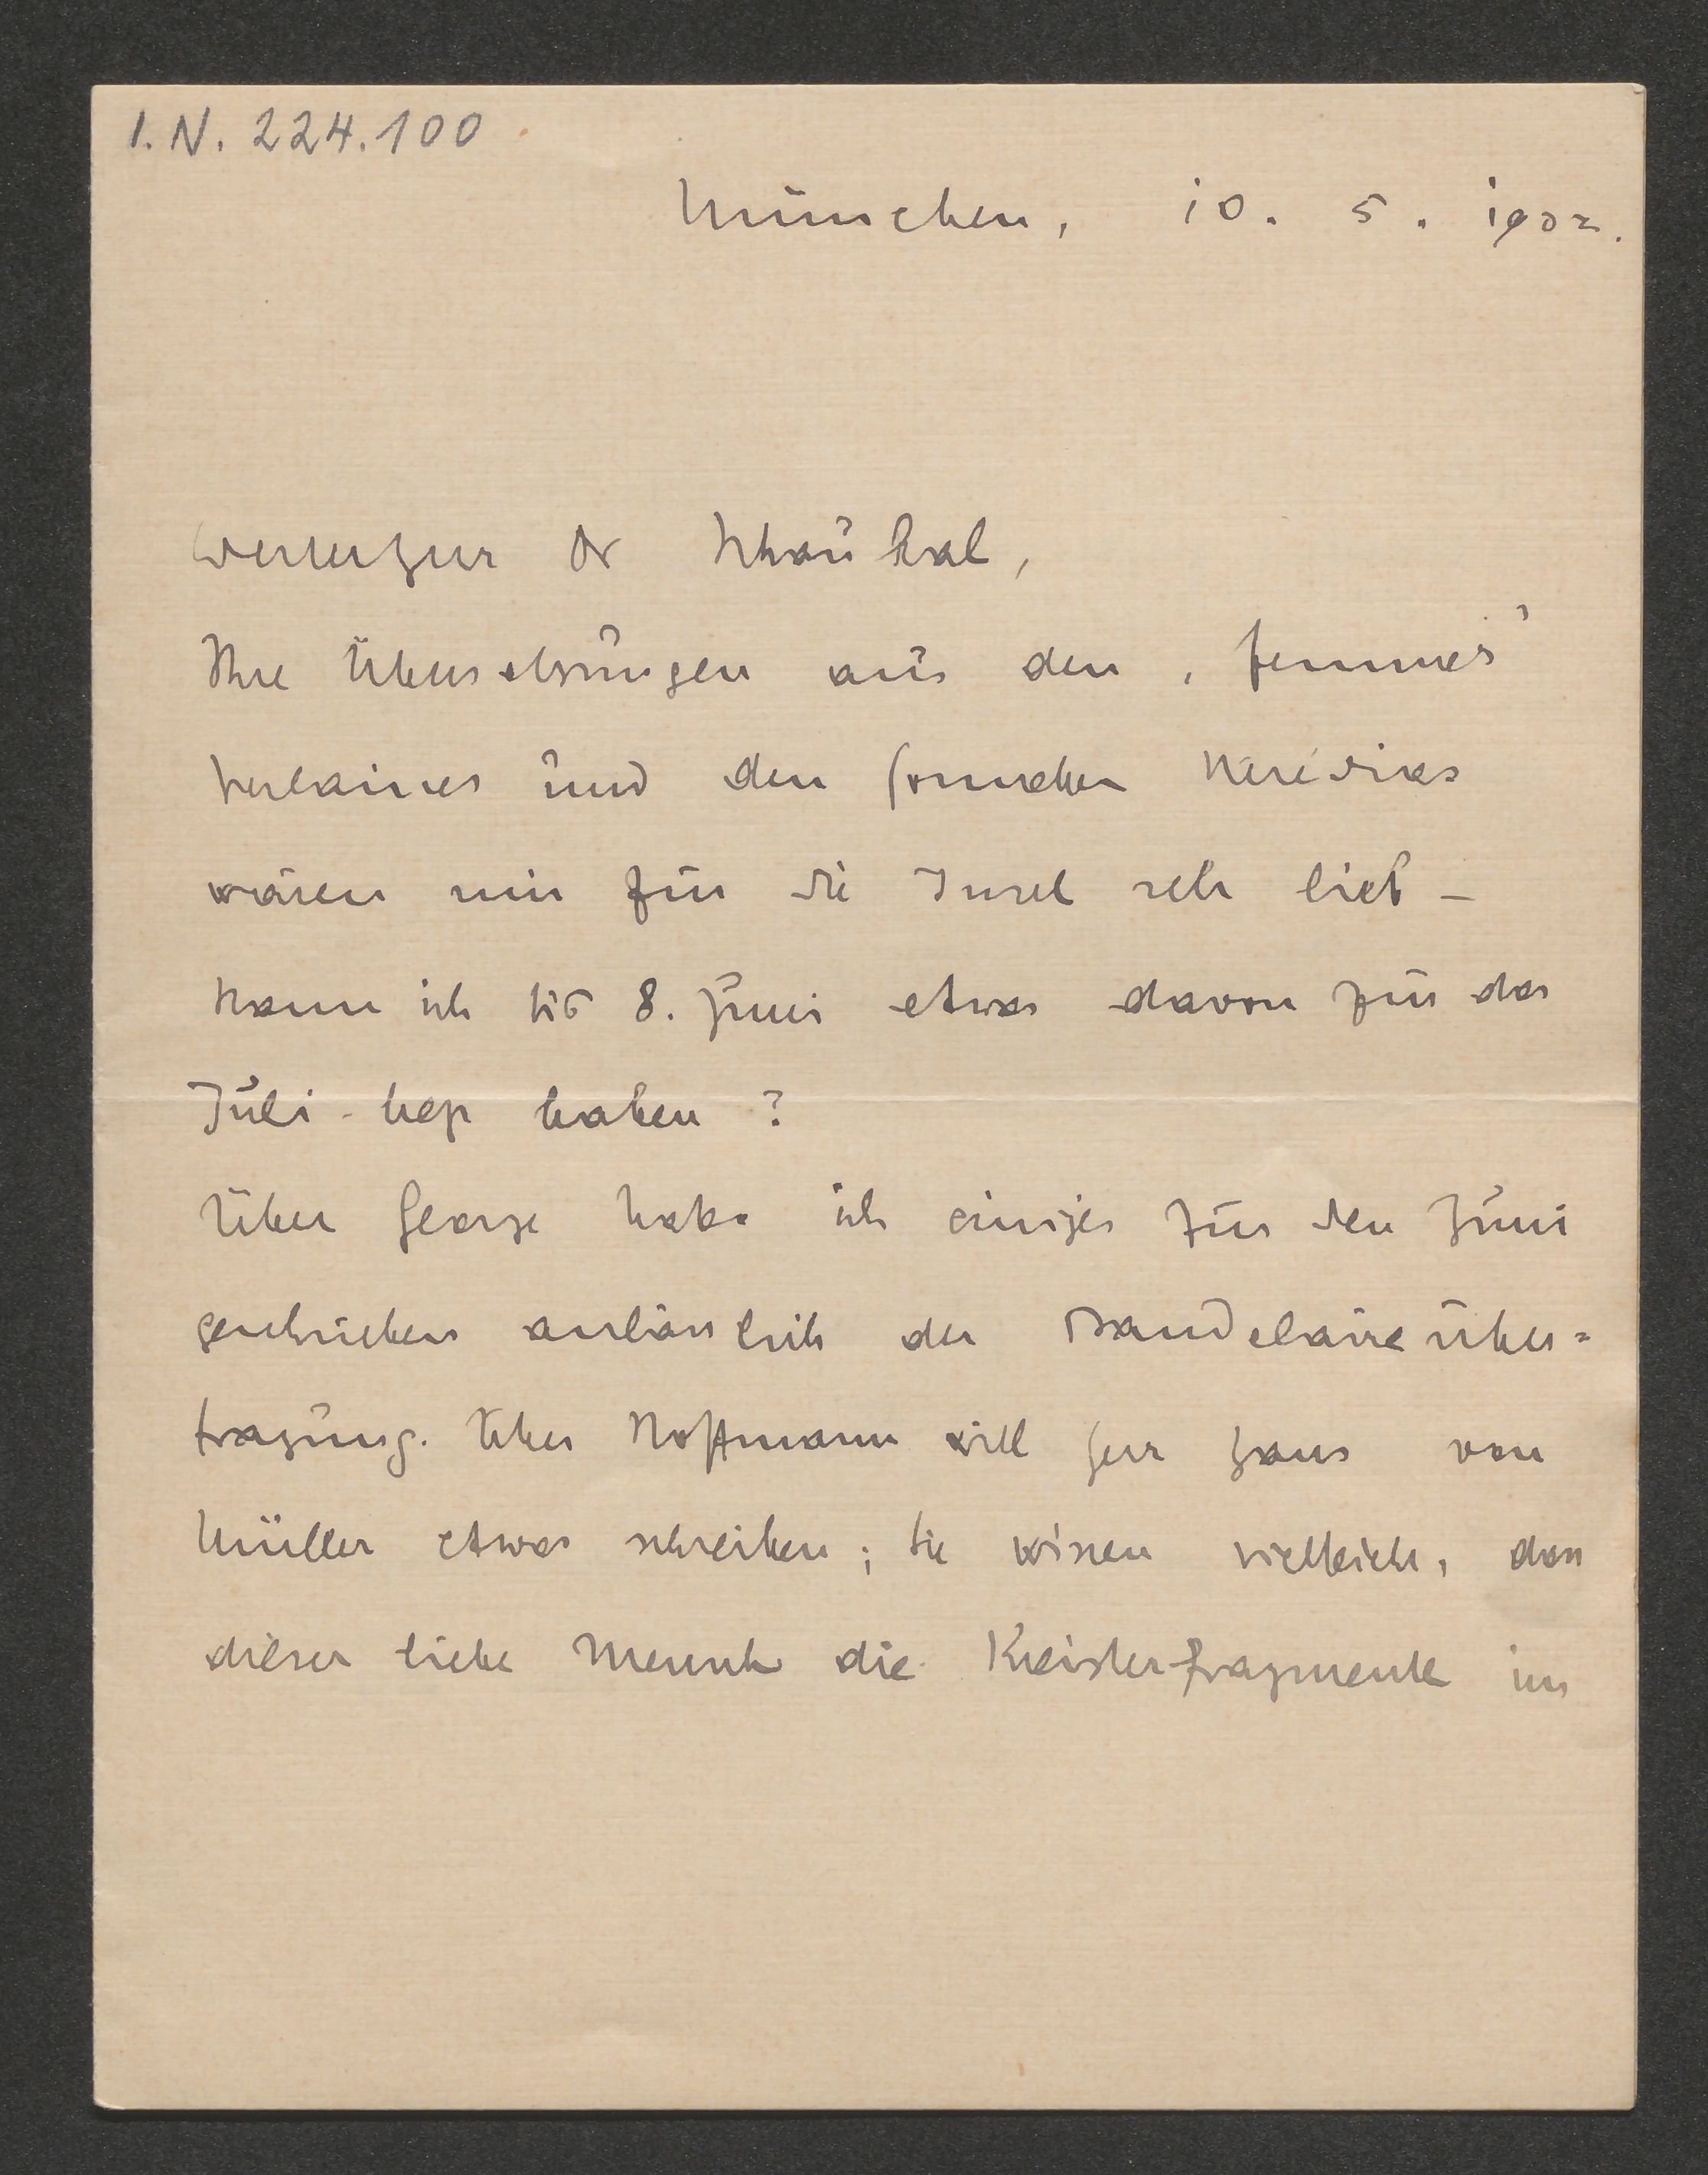 I.N. 224.100
München, 10. 5. 1902.
Werter Herr Dr Schaukal,
Ihre Übersetzungen aus den „femmes"
Verlaines und den Sonneten Herédias
wären mir für die Insel sehr lieb –
kann ich bis 8. Juni etwas davon für das
Juli-Heft haben?
Über George habe ich einiges für den Juni
geschrieben anlässlich der Baudelaireüber=
tragung. Über Hoffmann will Herr Hans von
Müller etwas schreiben; Sie wissen vielleicht, dass
dieser liebe Mensch die Kreislerfragmente im